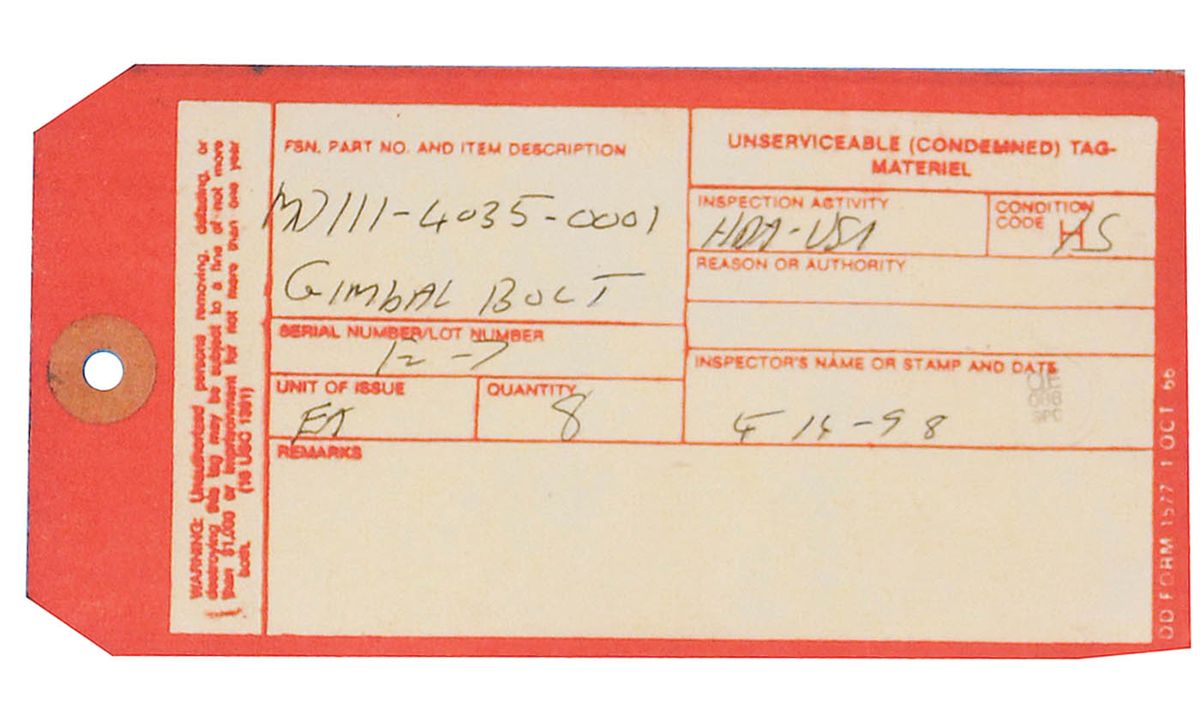 WARNING: Unauthorized persons removing, defacing, or
destroying this tag may be subject to a fine of not more
than $1,000 or imprisonment for not more than one year
both. (18 USC 1361)
FSN, PART NO. AND ITEM DESCRIPTION
MD111-4035-0001
GIMBAL BOLT
SERIAL NUMBER/LOT NUMBER
12-7
UNIT OF ISSUE
EA
QUANTITY
8
REMARKS
UNSERVICEABLE (CONDEMNED) TAG-
MATERIEL
INSPECTION ACTIVITY
HDA-USA
CONDITION
CODE H
REASON OR AUTHORITY
INSPECTOR'S NAME OR STAMP AND DATE
4 14-98
DD FORM 1577 1 OCT 66